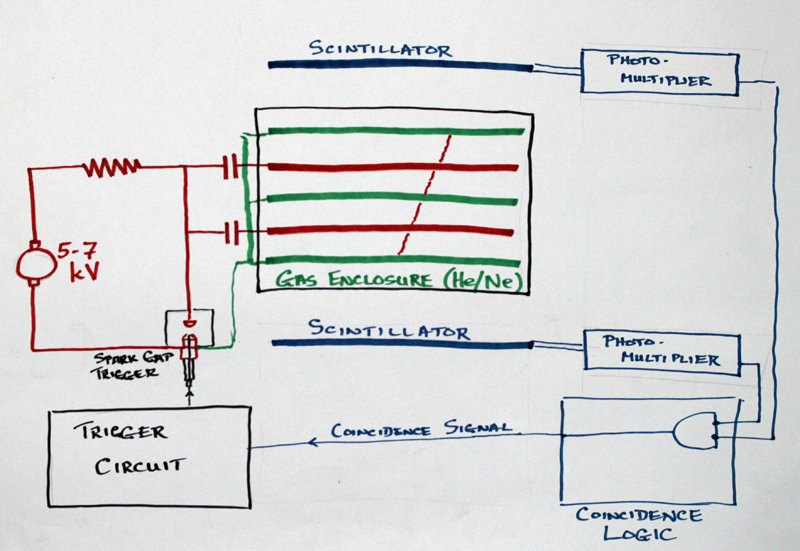 SCINTILLATOR
PHOTO-
MULTIPLIER
5-7
kV
GAS ENCLOSURE (He/Ne)
SCINTILLATOR
PHOTO-
MULTIPLIER
SPARK GAP
TRIGGER
TRIGGER
CIRCUIT
COINCIDENCE SIGNAL
COINCIDENCE
LOGIC